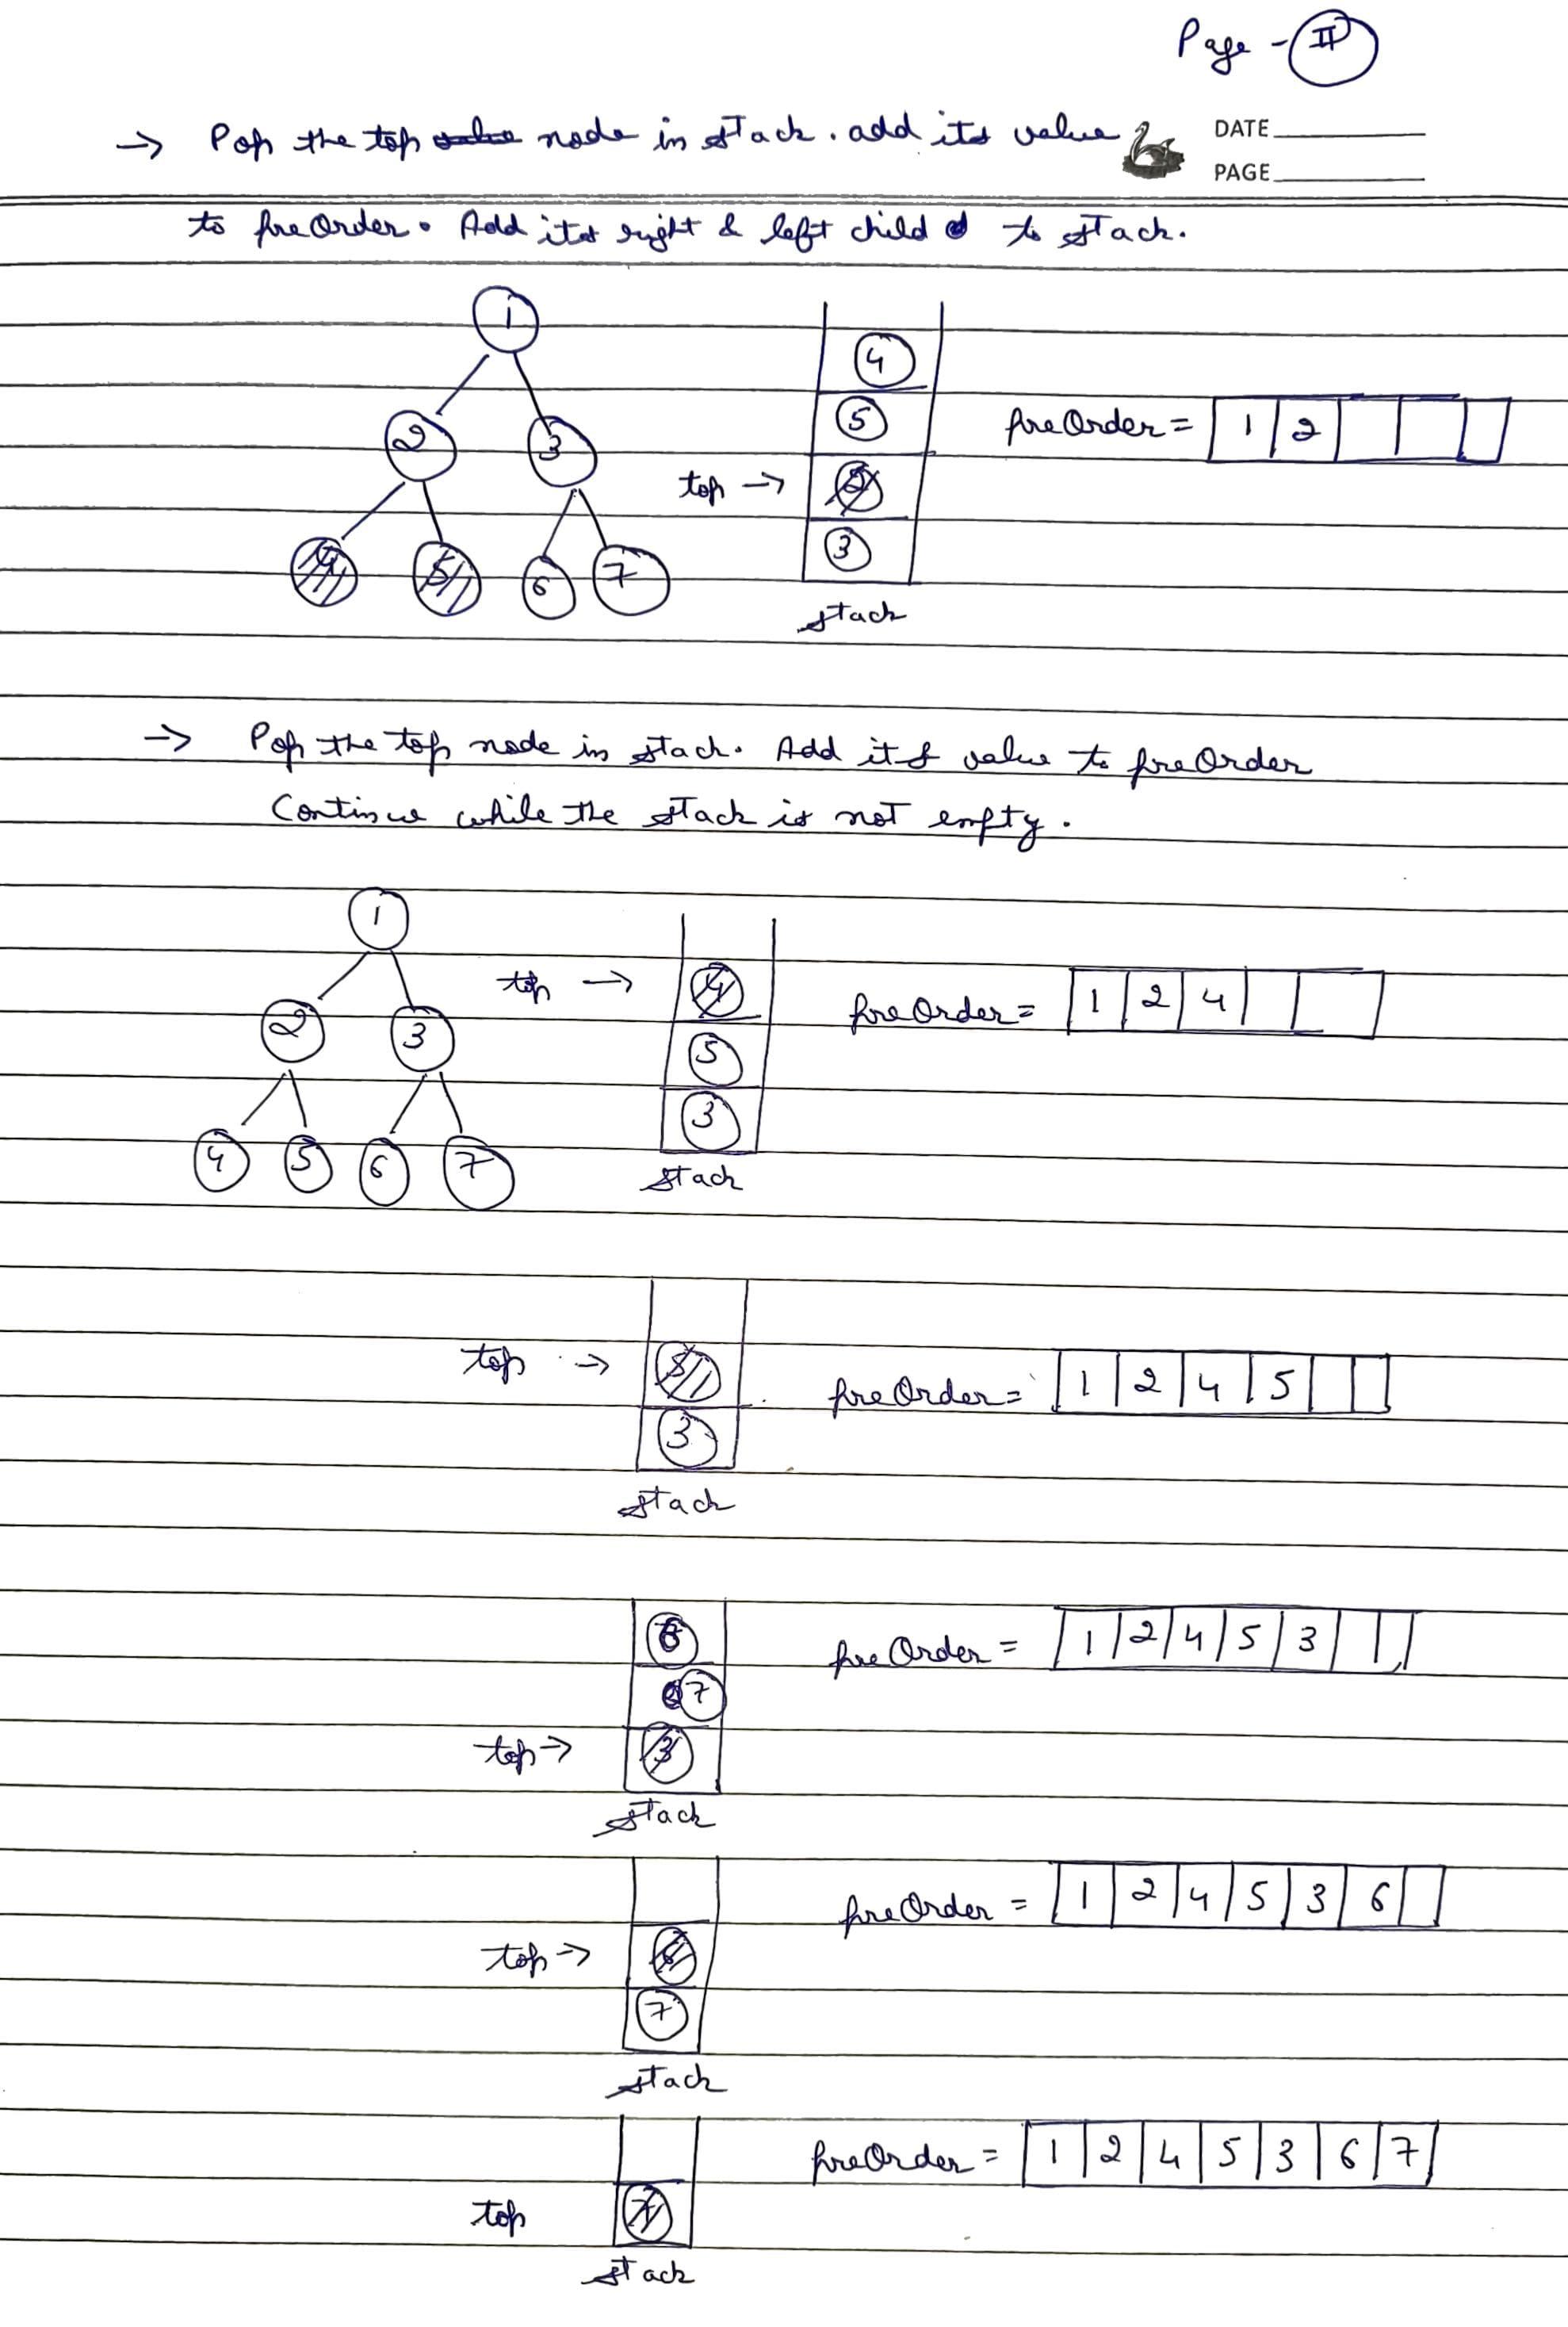 Page - II
→ Pop the top node in stack. add its value
DATE
PAGE
to preOrder. Add its right & left child to stack.
1
4
2 3
5
preOrder = 1 2
top → 2
4 5 6 7
3
stack
→ Pop the top node in stack. Add its value to preOrder
Continue while the stack is not empty.
1
top → 4
preOrder = 1 2 4
2 3
5
3
4 5 6 7
stack
top → 5
preOrder = 1 2 4 5
3
stack
6
preOrder = 1 2 4 5 3
7
top → 3
stack
preOrder = 1 2 4 5 3 6
top → 6
7
stack
preOrder = 1 2 4 5 3 6 7
top 7
stack